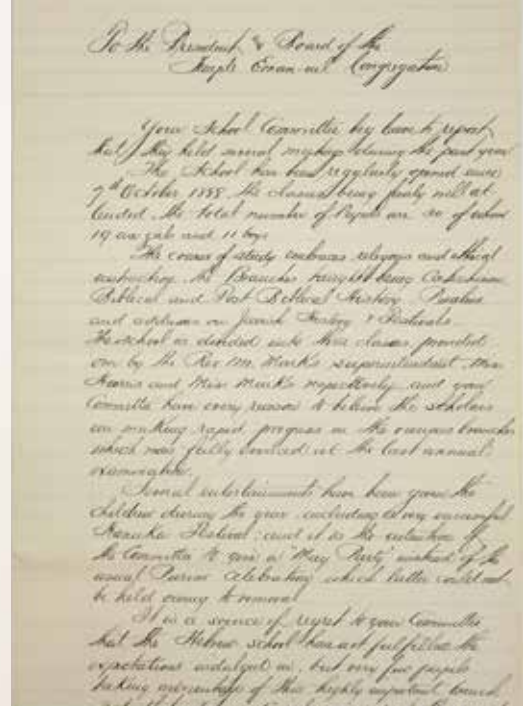 To the President & Board of the
Temple Eman-uel Congregation
Your School Committee beg leave to report
that they held several meetings during the past year
The School has been regularly opened since
7th October 1888 the classes being fairly well at
tended. the total number of Pupils are 30 of whom
19 are girls and 11 boys
The course of study embraces religious and ethical
instruction, the Branches taught being Catechism
Biblical and Post Biblical History,
and addresses on Jewish History & Festivals.
The school is divided into three classes, presided
over by the Rev Mr. Marks superintendent, Miss
Harris and Miss Marks respectively, and your
Committee have every reason to believe the scholars
are making rapid progress in the various branches
which was fully evinced at the last annual
examination.
Several entertainments have been given the
children during the year, including a very successful
Hanuka Festival, and it is the intention of
the Committee to give a "May Party" instead of the
usual Purim Celebration which latter could not
be held owing to removal
It is a source of regret to your Committee
that the Hebrew school has not fulfilled the
expectations indulged in, but very few pupils
taking advantage of this highly important branch